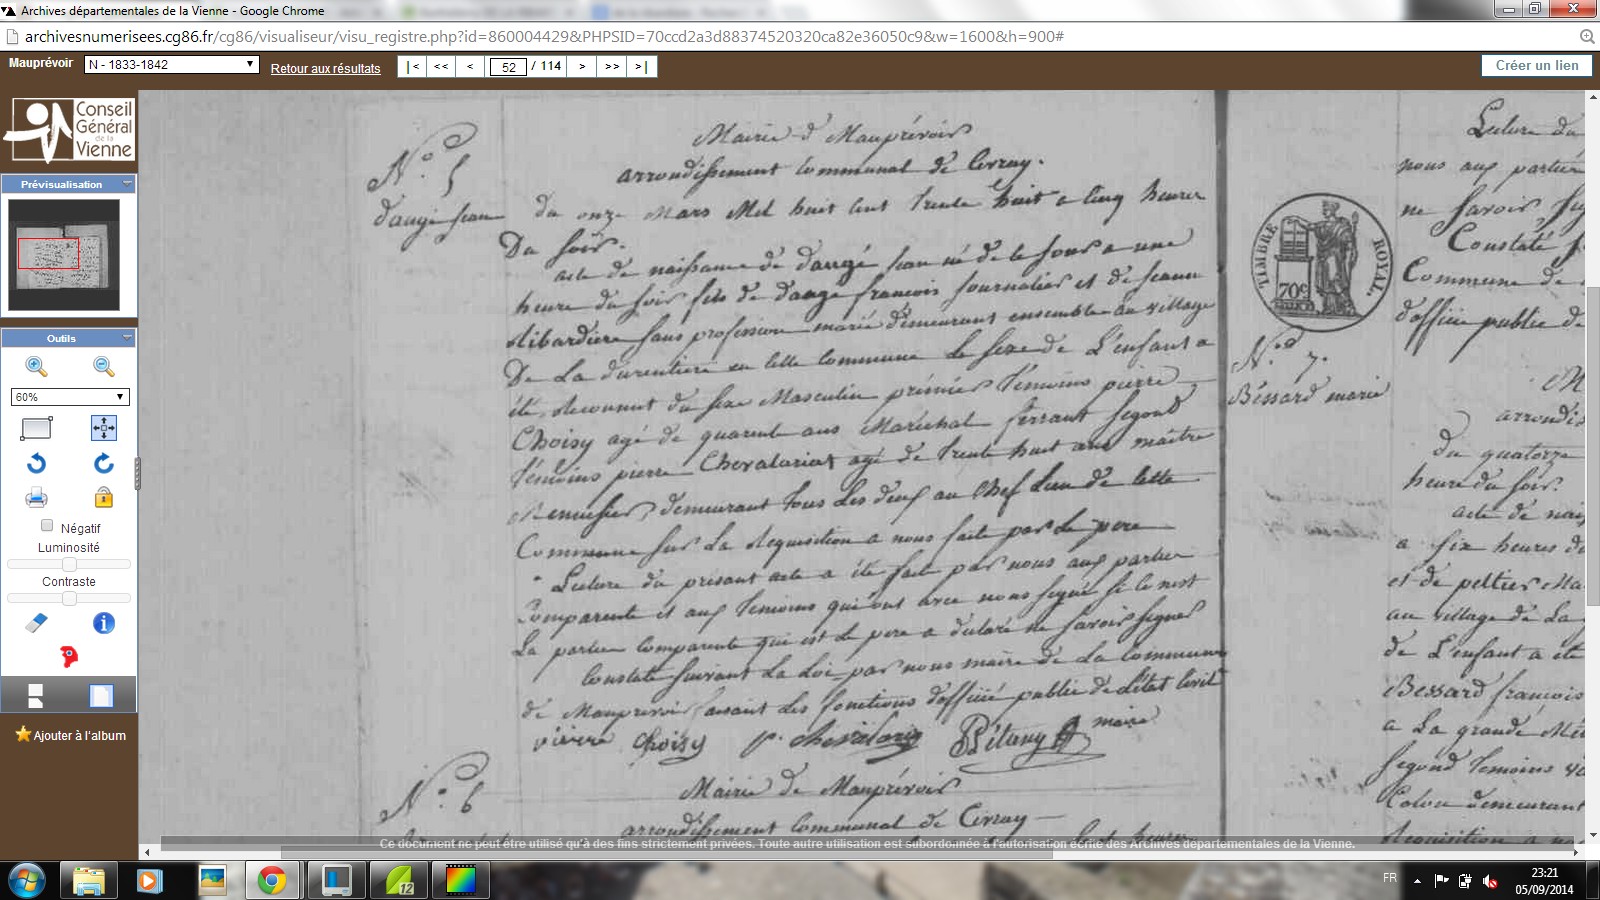 Archives départementales de la Vienne - Google Chrome
archivesnumerisees.cg86.fr/cg86/visualiseur/visu_registre.php?id=860004429&PHPSID=70ccd2a3d88374520320ca82e36050c9&w=1600&h=900#
Mauprévoir
N - 1833-1842
Retour aux résultats
|< << < 52 / 114 > >> >|
Créer un lien
Conseil
Général
de la
Vienne
Prévisualisation
Outils
60%
Négatif
Luminosité
Contraste
Ajouter à l'album
N.º 5
daugé jean
Mairie d Mauprévoir
arrondissement Communal de Civray.
du onze Mars Mil huit cent trente huit a cinq heures
Du soir.
acte de naissance de daugé jean né de ce jour a une
heure du soir fils de daugé françois journalier et de jeanne
libardiere sans profession marié demeurant ensemble au village
De La durentiere en cette commune Le sexe de L'enfant a
été reconnut du sexe Masculin prémier témoins pierre
Choisy agé de quarente ans Maréchal ferrant segond
témoins pierre Chevalarias agé de trente huit ans maitre
Menusier demeurant tous Les deux au Chef Lieu de cette
Commune sur La Requisition a nous faite par Le pere
Lecture du présant acte a été faite par nous aux partie
Comparente et aux temoins qui ont avec nous signé si ce n'est
La partie comparente qui est Le pere a déclaré ne savoir signer
Constaté suivant La Loi par nous maire de La commune
de Mauprevoir faisant Les fonctions d'officié publie de L'état Civil
pierre Choisy maire
N.º 6
Mairie de Mauprévoir
arrondissement communal de Civray
TIMBRE ROYAL.
70c
N.º 7.
Béssard marie
Lecture du
nous aux partie
ne savoir
Constaté
Commune de
d'officié publie de
arrondis
du quatorze
heure du soir.
acte de nais
a six heures du
et de peltier Ma
au village de La
de L'enfant a été
Bessard françois
a La grande
segond temoins
demeurant
Requisition a
Ce document ne peut être utilisé qu'à des fins strictement privées. Toute autre utilisation est subordonnée à l'autorisation écrite des Archives départementales de la Vienne.
12
FR
23:21
05/09/2014